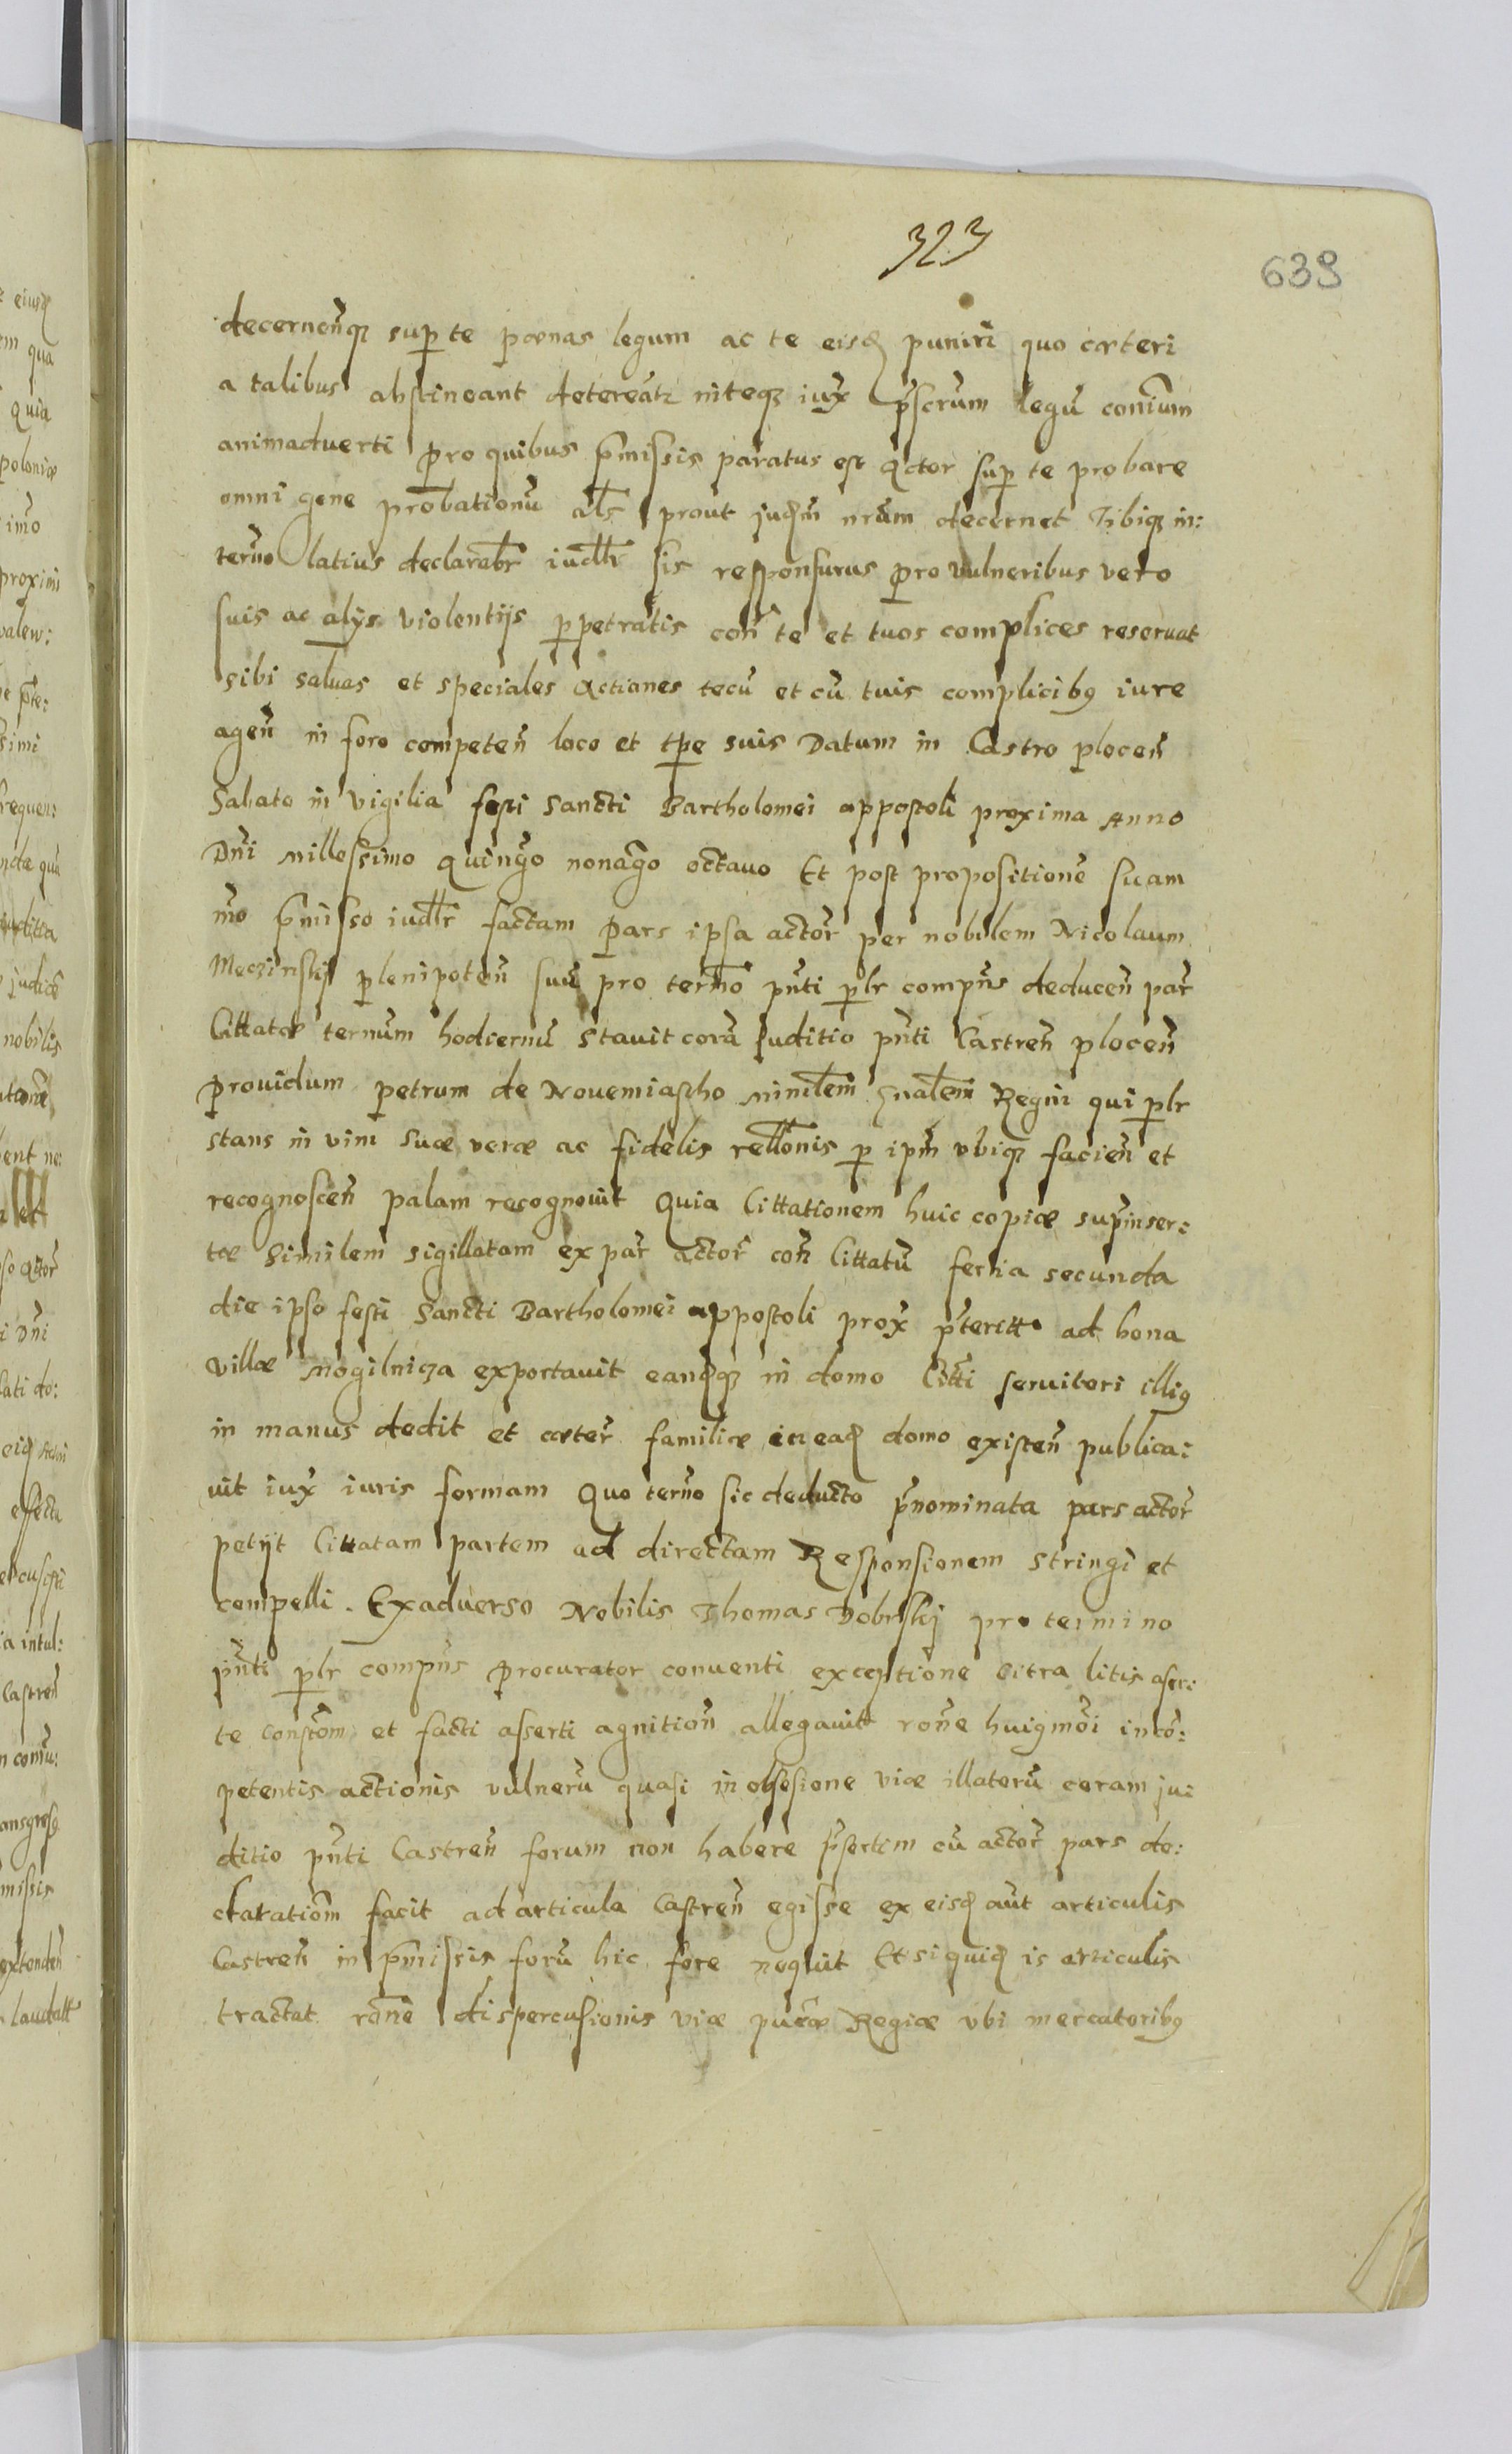 323
639
decernenq₃ sup te pœnas legum ac te eisd puniri quo cœteri
a talibus abstineant detereat niteq₃ iux pscrum legũ conium
animaduerti pro quibus pmissis paratus est Actor sup te probare
omni gene probationũ als prout judm nrum decernet Tibiq₃ in:
terno latius declarabr iudlr sis responsurus pro vulneribus vero
suis ac alijs violentijs ppetratis con te et tuos complices reseruat
sibi saluas et speciales Actiones tecũ et cũ tuis complicib9 iure
agen in foro competen loco et tpe suis Datum in Castro plocen
Sabato in vigilia festi Sancti Bartholomei appostoli proxima Anno
Dni millessimo quingo nonago octauo Et post propositione suam
mo pmisso iudlr factam pars ipsa actor per nobilem Nicolaum
plenipoten suũ pro termo pnti plr compns deducen par
Cittatæ ternum hodiernũ stauit corã Juditio pnti Castren plocen
prouidum petrum de Nouemiasho minilem gnalem Regni qui plr
stans in vim suæ veræ ac fidelis rellonis p ipm vbiq₃ facien et
recognoscen palam recognouit Quia Cittationem huic copiæ supinser:
tæ similem sigillatam ex par actor con Cittatũ feria secunda
die ipso festi Sancti Bartholomei appostoli prox pteritt ad bona
villæ Mogilnicza exportauit eandq₃ in domo Citti seruitori illi9
in manus dedit et cæter familiæ in ead domo existen publica:
uit iux iuris formam Quo terno sic deducto pnominata pars actor
petijt Cittatam partem ad directam Responsionem stringi et
compelli. Exaduerso Nobilis Thomas Dobrskj pro termino
pnti plr compns procurator conuenti exceptione citra litis aser:
te constom et facti asserti agnition allegauit rone hui9moi incõ:
petentis actionis vulnerũ quasi in obsesione viæ illatorũ coram ju:
ditio pnti Castren forum non habere psertim cũ actor pars de:
claratiom facit ad articula Castren egisse ex eisd aut articulis
Castren in pmissis forũ hic fore nequit Et siquid is articulis
tractat rone dispercusionis viæ pucæ Regiæ vbi mercatorib9